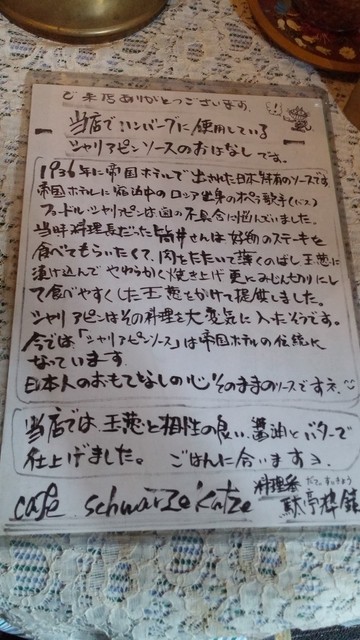 ご来店ありがとうございます。
当店でハンバーグに使用している
シャリアピンソースのおはなしです。
1936年に帝国ホテルで出された日本特有のソースです
帝国ホテルに宿泊中のロシア出身のオペラ歌手(バス)
フョードル・シャリアピンは歯の不具合に悩んでいました。
当時料理長だった筒井さんは好物のステーキを
食べてもらいたくて、肉をたたいて薄くのばし玉葱に
漬け込んでやわらかく焼き上げ更にみじん切りにし
て食べやすくした玉葱をかけて提供しました。
シャリアピンはその料理を大変気に入たそうです。
今では「シャリアピンソース」は帝国ホテルの伝統に
なっています
日本人のおもてなしの心そのままのソースですネ.
当店では、玉葱と相性の良い、醤油とバターで
仕上げました。 ごはんに合いますョ.
cafe schwarze katze 料理番